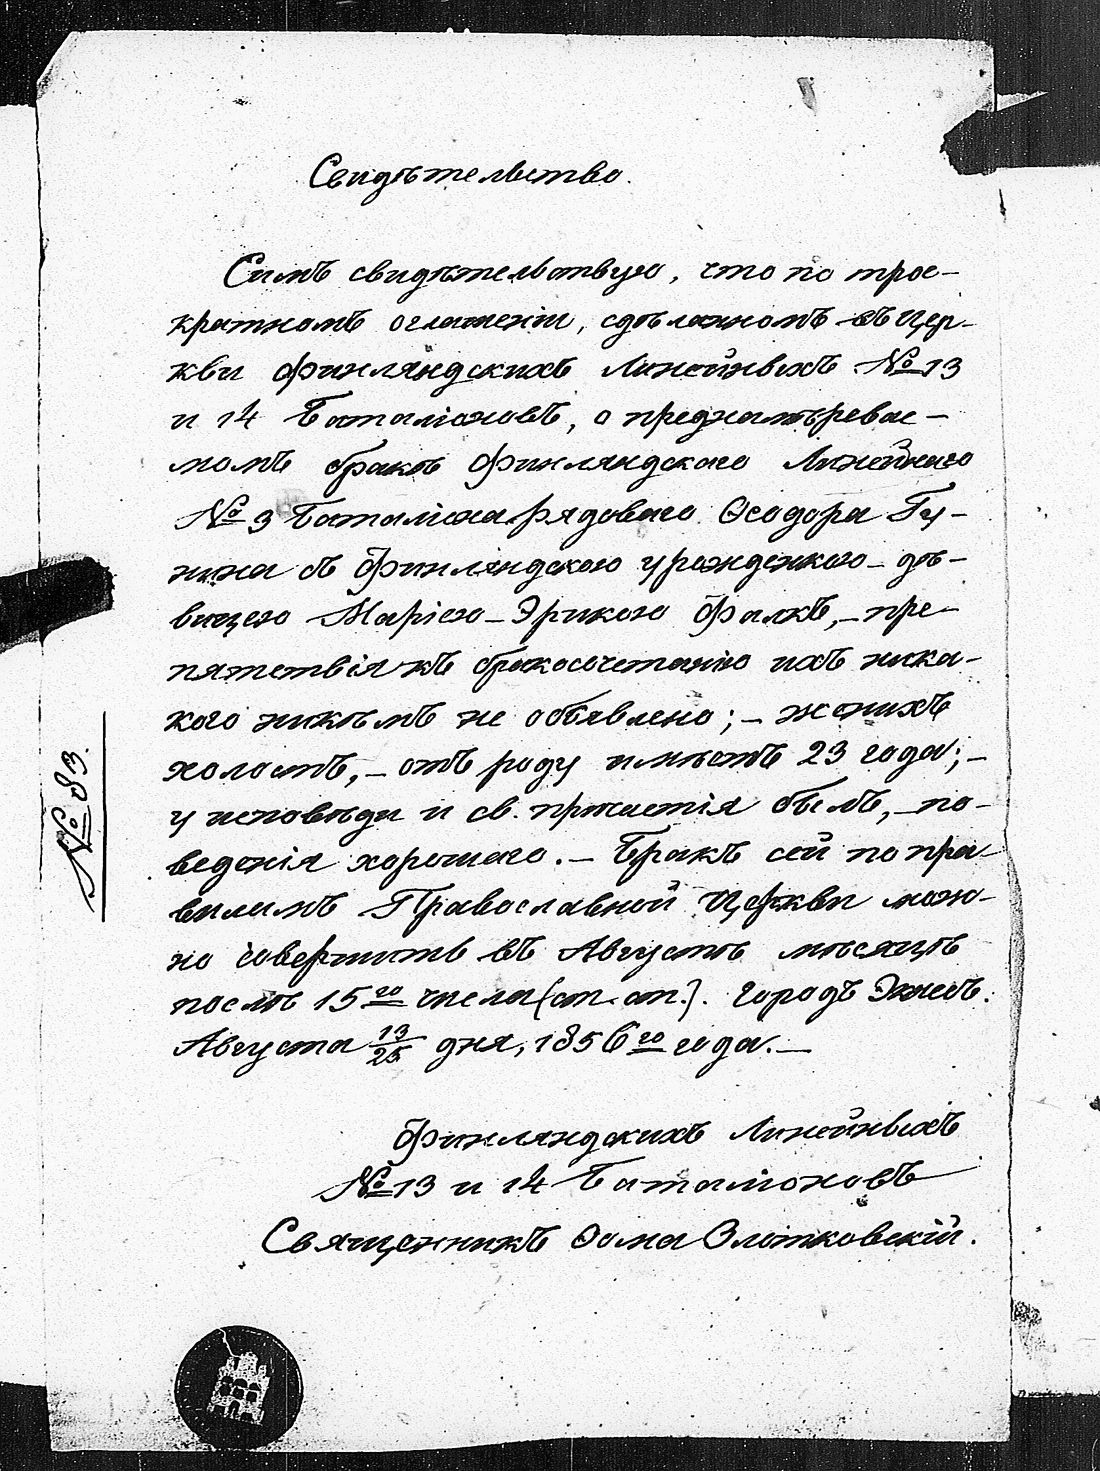 Свидѣтельство.
Симъ свидѣтельствую, что по трое-
кратномъ оглашеніи, сдѣланномъ въ Цер-
кви Финляндскихъ Линейныхъ № 13
и 14 Баталіоновъ, о преднамѣревае-
момъ бракѣ Финляндскаго Линейнаго
№ 3 Баталіона рядоваго Ѳеодора Гу-
нина съ Финляндскою урожденкою - дѣ-
вицею Маріею - Эрикою Фалкъ, - пре-
пятствія къ бракосочетанію ихъ ника-
кого никѣмъ не объявлено; - женихъ
холостъ, - отъ роду имѣетъ 23 года; -
у исповѣди и св. причастія былъ, - по-
веденія хорошаго. - Бракъ сей по пра-
виламъ Православной Церкви мож-
но совершить въ Августѣ мѣсяцѣ
послѣ 15го числа (ст. ст.). Городъ Экнесъ.
Августа 13/25 дня, 1856го года. -
Финляндскихъ Линейныхъ
№ 13 и 14 Баталіоновъ
Священникъ Ѳома Злотковскій.
№ 83.